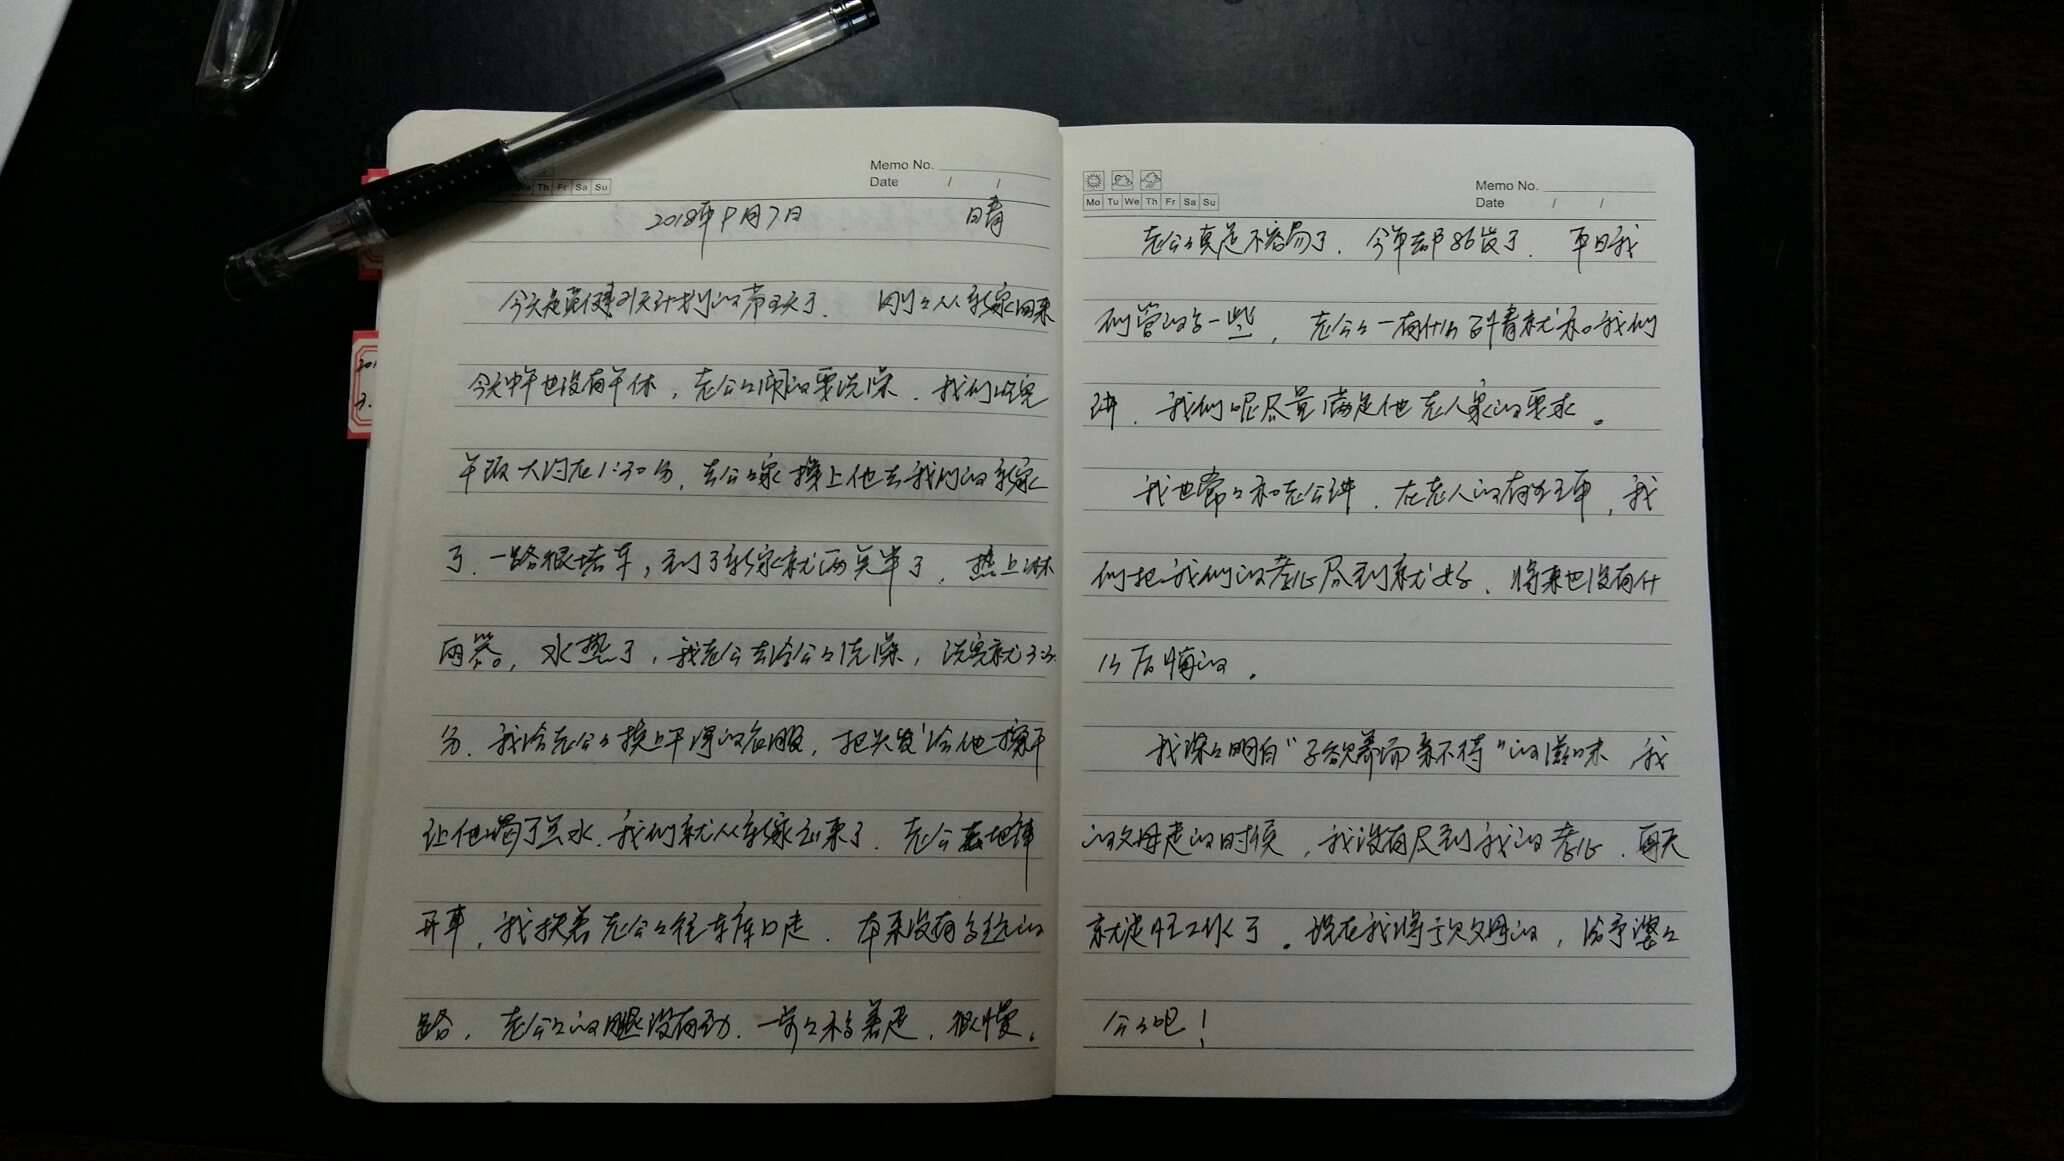 Th Fr Sa Su
Memo No.
Date / /
2018年9月7日 晴
今天是践行21天计划的第五天了. 刚々从新家回来
今天中午也没有午休，老公公闹的要洗澡. 我们吃完
午饭大约在1:30分. 去公公家接上他去我们的新家
了. 一路很堵车，到了新家就两点半了. 热上淋
雨器。水热了，我老公去给公公洗澡，洗完就3:3
分. 我给老公公换上干净的衣服，把头发给他擦干
让他喝了点水. 我们就从新家出来了. 老公去地库
开车，我扶着老公公往车库口走. 本来没有多远的
路，老公公的腿没有劲. 一步々移着走，很慢。
Mo Tu We Th Fr Sa Su
Memo No.
Date / /
老公公真是不容易了. 今年都86岁了. 平日我
们管的多一些，老公公一有什么事情就和我们
讲. 我们呢尽量满足他老人家的要求。
我也常々和老公讲. 在老人的有生之年，我
们把我们的孝心尽到就好. 将来也没有什
么后悔的。
我深々明白“子欲养而亲不待”的滋味，我
的父母走的时候，我没有尽到我的孝心. 每天
就是忙工作了。现在我将亏欠父母的，给予婆婆
公公吧！